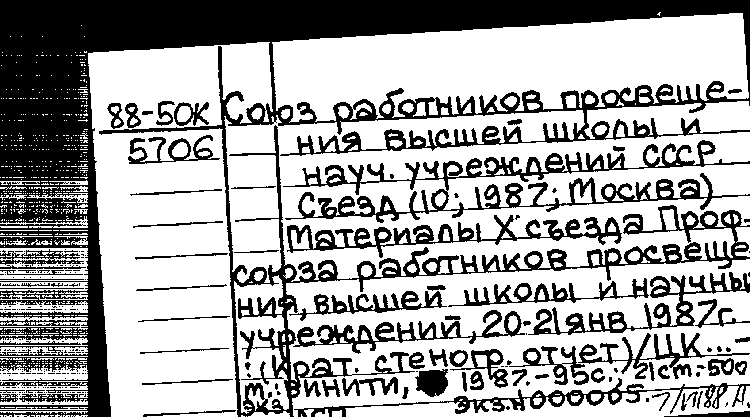 88-50К Союз работников просвеще-
5706 ния высшей школы и
науч. учреждений СССР.
Съезд (10; 1987; Москва)
Материалы X съезда Проф-
союза работников просвеще
ния, высшей школы и научны
учреждений, 20-21 янв. 1987г.
: (Крат. стеногр. отчет)/ЦК...-
м.: ВИНИТИ, 1987.-95с.; 21см.-500
экз. Экз.N000005.